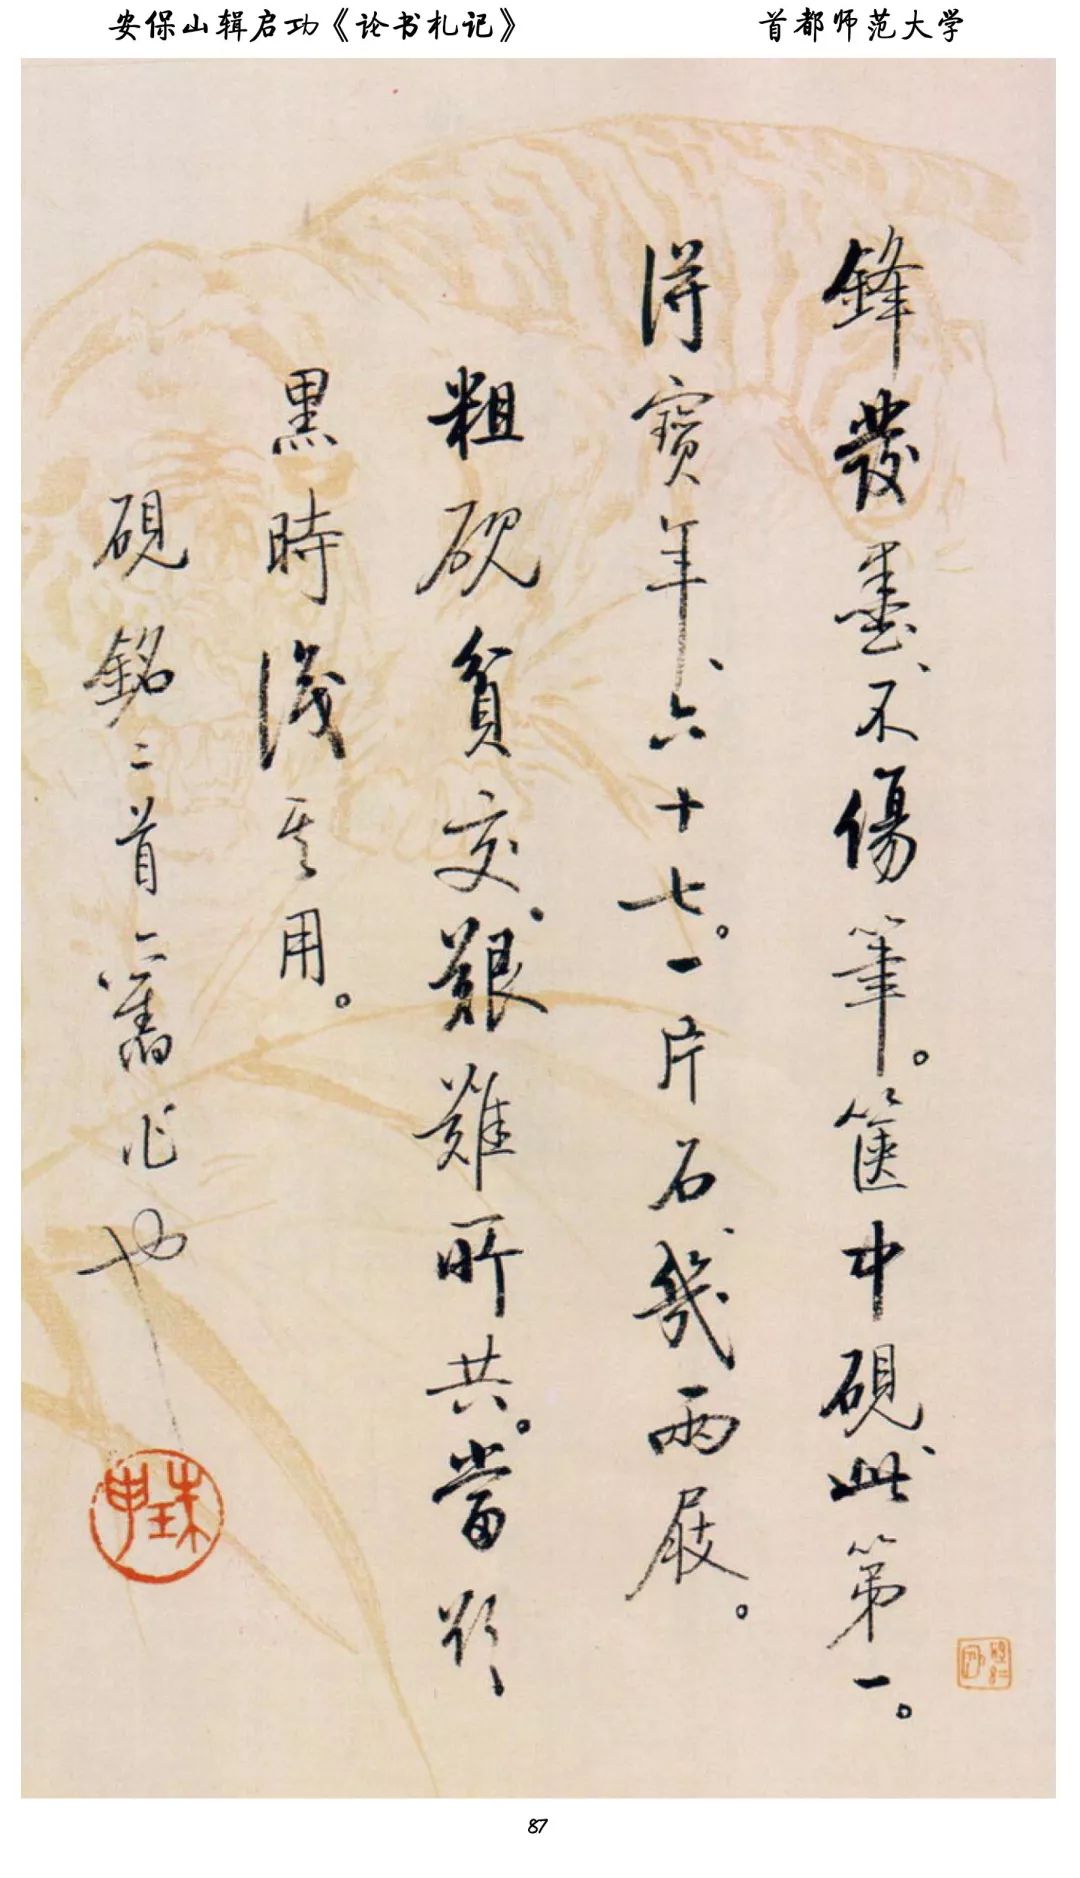 安保山辑启功《论书札记》
首都师范大学
鋒發墨、不傷筆。篋中硯、此第一。
得寶年、六十七。一片石、幾兩屐。
粗砚貧交、艱難所共。當欲
黑時、識其用。
硯銘二首、舊作也
珠申
87